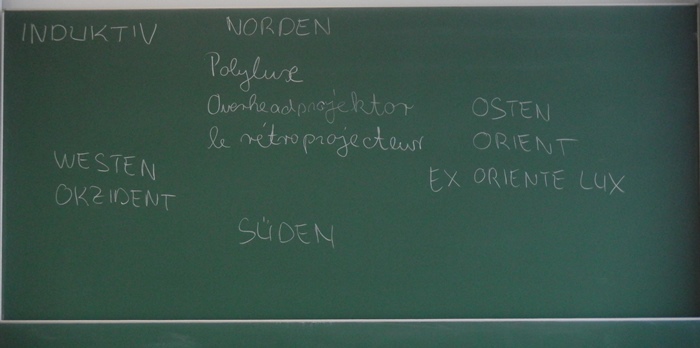 INDUKTIV
NORDEN
Polylux
Overheadprojektor
le rétroprojecteur
OSTEN
ORIENT
EX ORIENTE LUX
WESTEN
OKZIDENT
SÜDEN